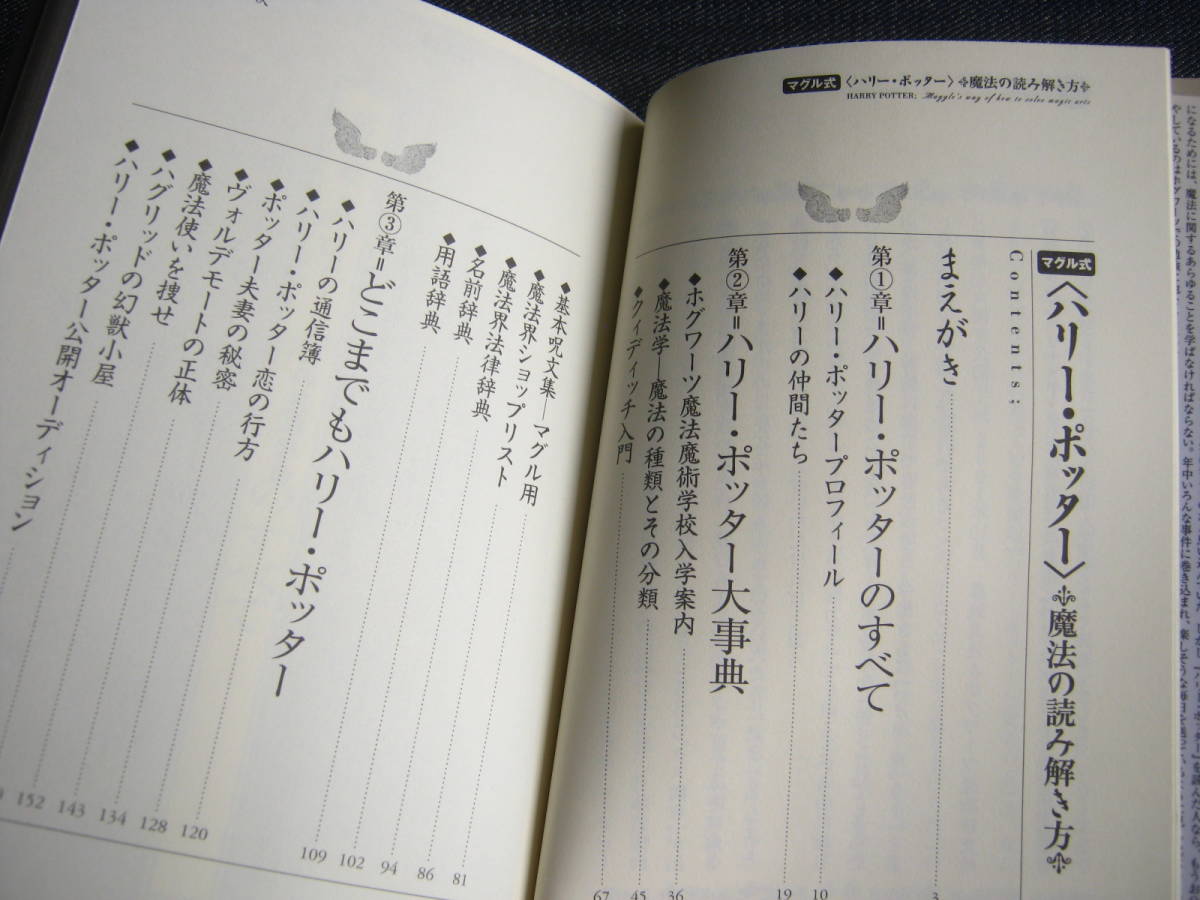 マグル式〈ハリー・ポッター〉魔法の読み解き方
HARRY POTTER; Muggle's way of how to solve magic arts
マグル式〈ハリー・ポッター〉魔法の読み解き方
Contents;
まえがき 3
第①章=ハリー・ポッターのすべて
◆ハリー・ポッタープロフィール 10
◆ハリーの仲間たち 19
第②章=ハリー・ポッター大事典
◆ホグワーツ魔法魔術学校入学案内 36
◆魔法学―魔法の種類とその分類 45
◆クィディッチ入門 67
◆基本呪文集―マグル用 81
◆魔法界ショップリスト 86
◆魔法界法律辞典 94
◆名前辞典 102
◆用語辞典 109
第③章=どこまでもハリー・ポッター
◆ハリーの通信簿 120
◆ハリー・ポッター恋の行方 128
◆ポッター夫妻の秘密 134
◆ヴォルデモートの正体 143
◆魔法使いを捜せ 152
◆ハグリッドの幻獣小屋
◆ハリー・ポッター公開オーディション
になるためには、魔法に関するあらゆることを学ばなければならない。年中いろんな事件に巻き込まれ、楽しそうな毎日を